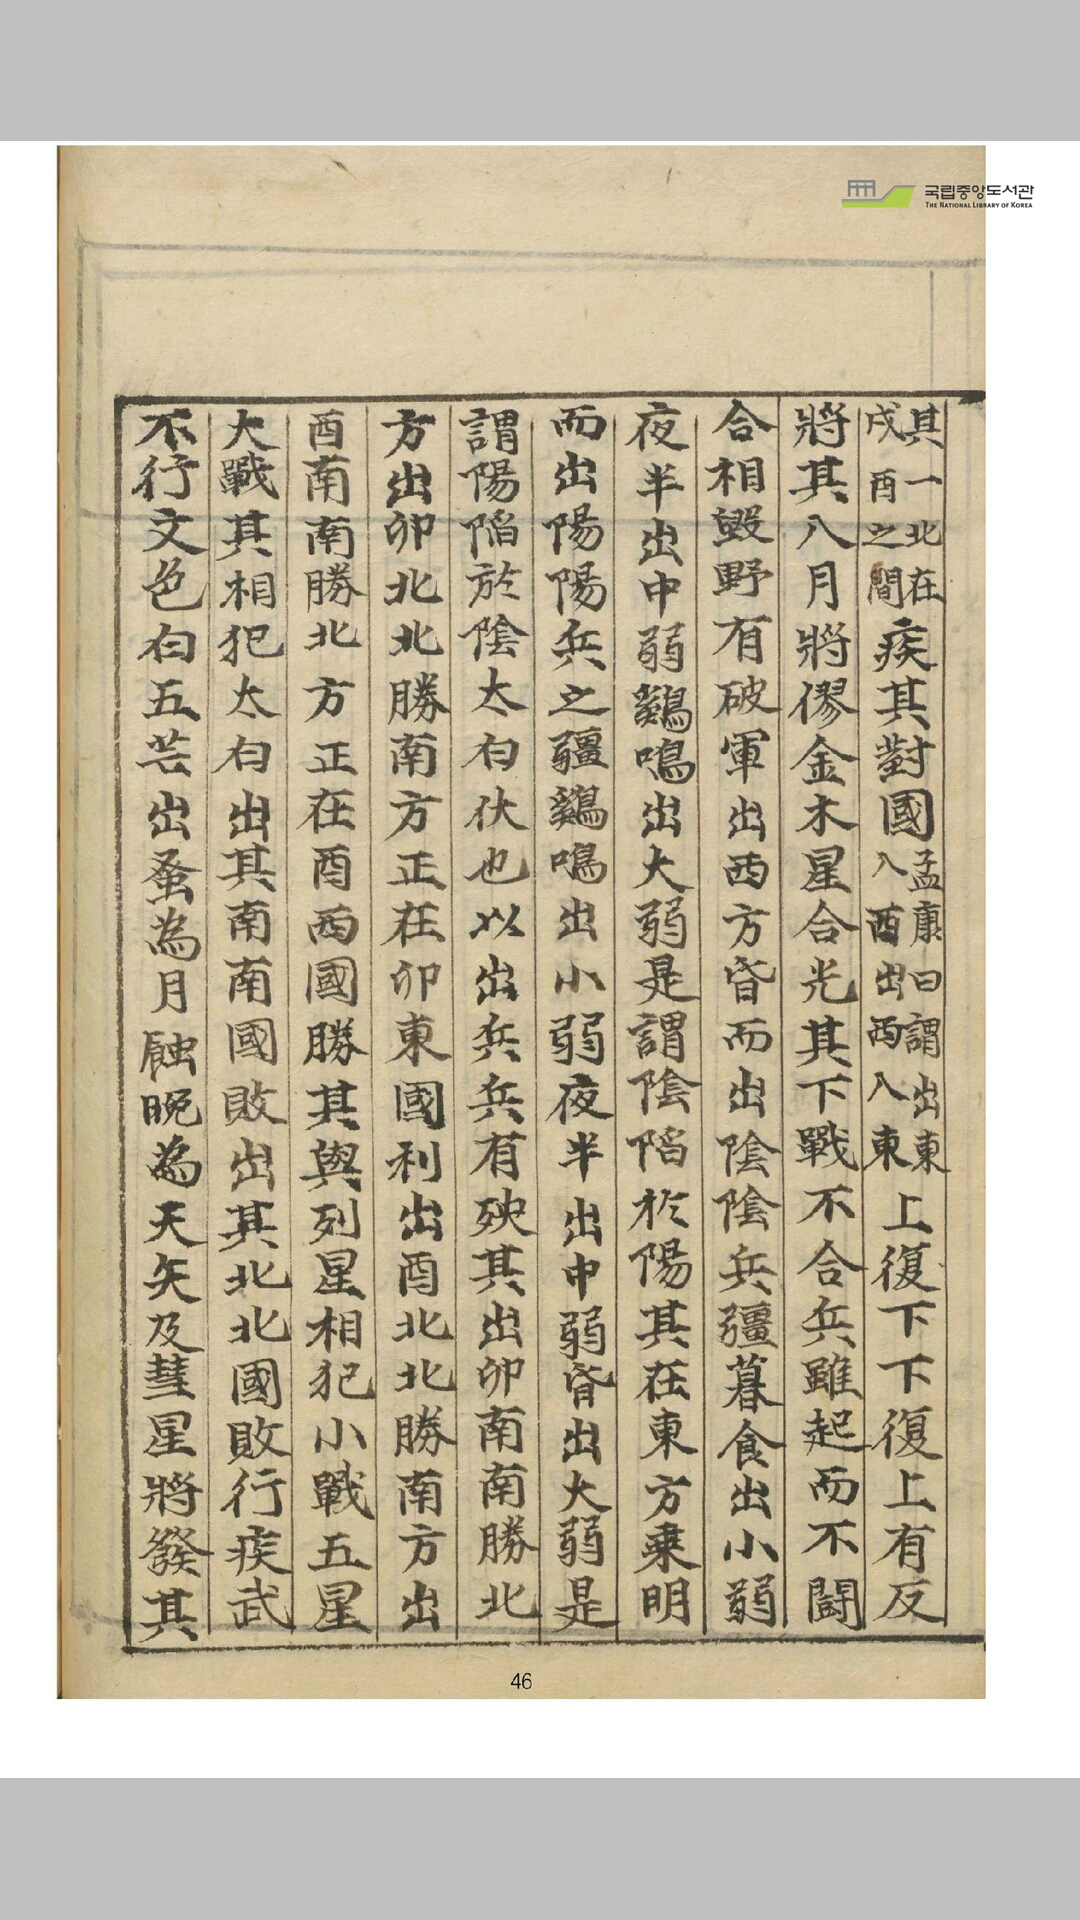 국립중앙도서관
THE NATIONAL LIBRARY OF KOREA
其一北在戌酉之間疾其對國孟康曰謂出東入酉出西入東上復下下復上有反
將其八月將僇金木星合光其下戰不合兵雖起而不闘
合相毀野有破軍出西方昏而出陰陰兵彊暮食出小弱
夜半出中弱鷄鳴出大弱是謂陰陷於陽其在東方乘明
而出陽陽兵之疆鷄鳴出小弱夜半出中弱昏出大弱是
謂陽陷於陰太白伏也以出兵兵有殃其出卯南南勝北
方出卯北北勝南方正在卯東國利出酉北北勝南方出
酉南南勝北方正在酉西國勝其與列星相犯小戰五星
大戰其相犯太白出其南南國敗出其北北國敗行疾武
不行文色白五芒出蚤為月蝕晚為天矢及彗星將發其
46